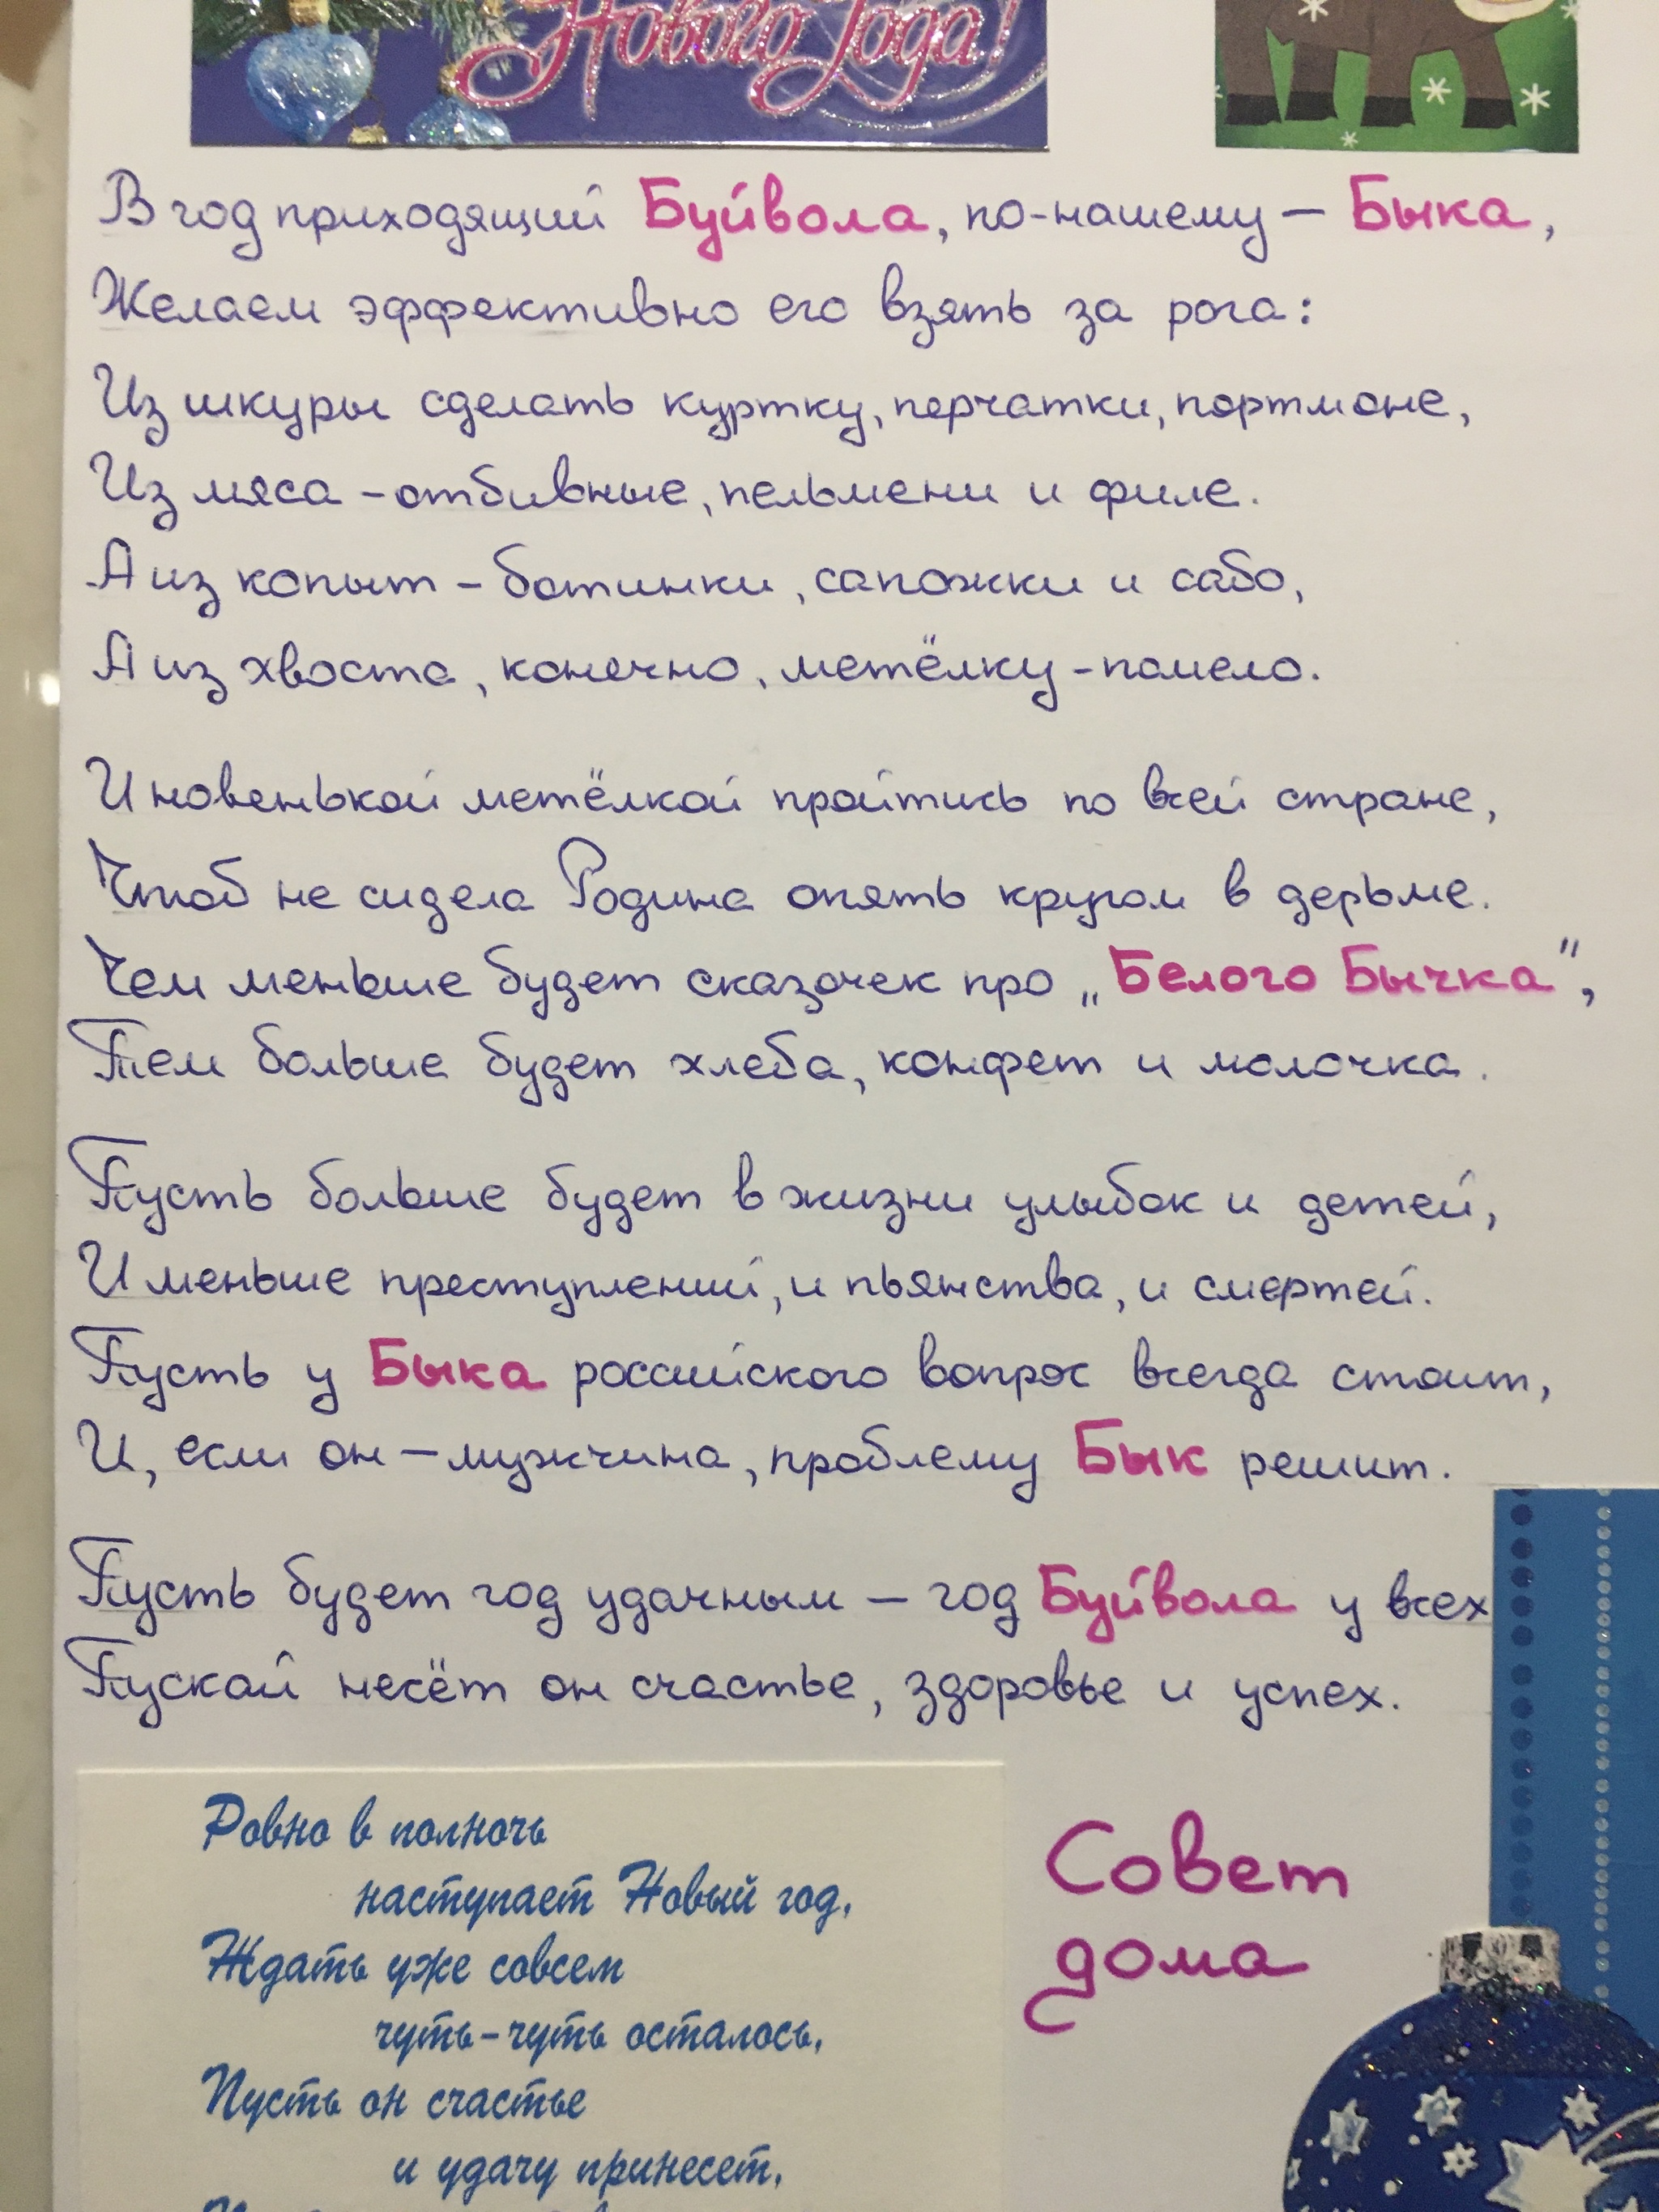 Нового Года!
В год приходящий Буйвола, по-нашему – Быка,
Желаем эффективно его взять за рога:
Из шкуры сделать куртку, перчатки, портмоне,
Из мяса – отбивные, пельмени и филе.
А из копыт – ботинки, сапожки и сабо,
А из хвоста, конечно, метёлку-помело.
И новенькой метёлкой пройтись по всей стране,
Чтоб не сидела Родина опять кругом в дерьме.
Чем меньше будет сказочек про „Белого Бычка",
Тем больше будет хлеба, конфет и молочка.
Пусть больше будет в жизни улыбок и детей,
И меньше преступлений, и пьянства, и смертей.
Пусть у Быка российского вопрос всегда стоит,
И, если он – мужчина, проблему Бык решит.
Пусть будет год удачным – год Буйвола у всех
Пускай несёт он счастье, здоровье и успех.
Ровно в полночь
наступает Новый год,
Ждать уже совсем
чуть-чуть осталось,
Пусть он счастье
и удачу принесет,
Совет
дома